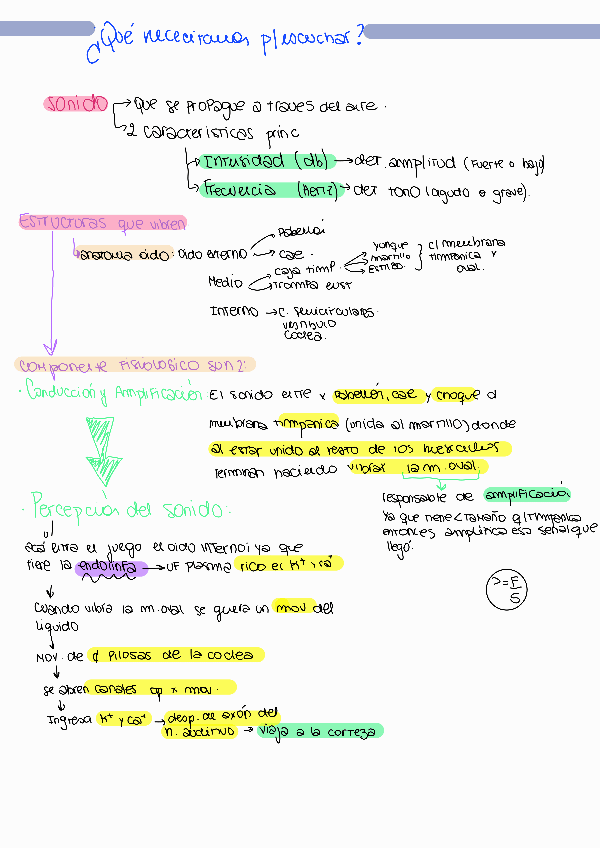 ¿Qué necesitamos p/escuchar?
Sonido → Que se propague a traves del aire.
→ 2 caracteristicas princ
→ Intensidad (db) → det. amplitud (Fuerte o bajo)
→ Frecuencia (Hertz) → det tono (agudo o grave).
Estructuras que vibren
anatomia oido: Oido externo
Pabellon
cae.
Medio
caja timp.
yunque
martillo
estribo.
c/ membrana
timpanica y
oval.
trompa eust
Interno → c. semicirculares.
vestibulo
coclea.
Componente Fisiologico son 2:
· Conducción y Amplificación: El sonido entre x Pabellón, cae y choque a
membrana timpanica (unida al martillo) donde
al estar unido al resto de los huesecillos
terminan haciendo vibrar la m. oval.
responsable de amplificació
Ya que tiene < tamaño q/ timpanica
entonces amplifica esa señal que
llegó.
>= F
S
· Percepción del sonido:
acá entra el juego el oido interno; ya que
tiene la endolinfa → UF plasma rico el K+ y Ca+
Cuando vibra la m. oval se genera un mov del
liquido
Mov. de ¢ Pilosas de la coclea
se abren canales op x mov.
Ingresa K+ y Ca+ → desp. de axón del
n. auditivo → viaja a la corteza